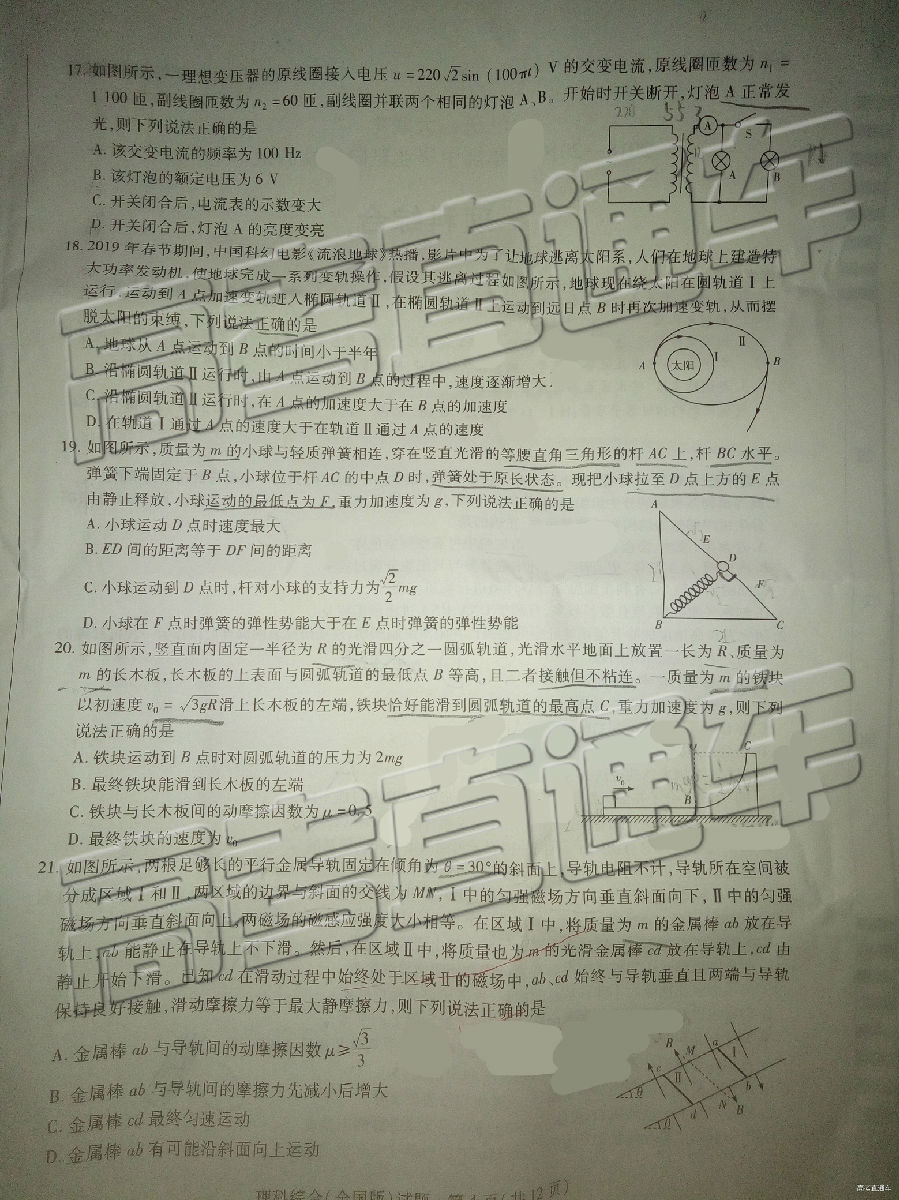 17. 如图所示,一理想变压器的原线圈接入电压 u=220√2sin (100πt) V 的交变电流,原线圈匝数为 n₁=
1 100 匝,副线圈匝数为 n₂=60 匝,副线圈并联两个相同的灯泡 A、B。开始时开关断开,灯泡 A 正常发
光,则下列说法正确的是
220 55:3
A. 该交变电流的频率为 100 Hz
B. 该灯泡的额定电压为 6 V
C. 开关闭合后,电流表的示数变大
D. 开关闭合后,灯泡 A 的亮度变亮
A S A B
18. 2019 年春节期间,中国科幻电影《流浪地球》热播,影片中为了让地球逃离太阳系,人们在地球上建造特
大功率发动机,使地球完成一系列变轨操作,假设其逃离过程如图所示,地球现在绕太阳在圆轨道 Ⅰ 上
运行,运动到 A 点加速变轨进入椭圆轨道Ⅱ,在椭圆轨道Ⅱ上运动到远日点 B 时再次加速变轨,从而摆
脱太阳的束缚,下列说法正确的是
A. 地球从 A 点运动到 B 点的时间小于半年
B. 沿椭圆轨道Ⅱ运行时,由 A 点运动到 B 点的过程中,速度逐渐增大.
C. 沿椭圆轨道Ⅱ运行时,在 A 点的加速度大于在 B 点的加速度
D. 在轨道 Ⅰ 通过 A 点的速度大于在轨道Ⅱ通过 A 点的速度
A 太阳 Ⅰ Ⅱ B
19. 如图所示,质量为 m 的小球与轻质弹簧相连,穿在竖直光滑的等腰直角三角形的杆 AC 上,杆 BC 水平。
弹簧下端固定于 B 点,小球位于杆 AC 的中点 D 时,弹簧处于原长状态。现把小球拉至 D 点上方的 E 点
由静止释放,小球运动的最低点为 F,重力加速度为 g,下列说法正确的是
A. 小球运动 D 点时速度最大
B. ED 间的距离等于 DF 间的距离
C. 小球运动到 D 点时,杆对小球的支持力为√2/2 mg
D. 小球在 F 点时弹簧的弹性势能大于在 E 点时弹簧的弹性势能
A E D F B C
20. 如图所示,竖直面内固定一半径为 R 的光滑四分之一圆弧轨道,光滑水平地面上放置一长为 R、质量为
m 的长木板,长木板的上表面与圆弧轨道的最低点 B 等高,且二者接触但不粘连。一质量为 m 的铁块
以初速度 v₀=√3gR滑上长木板的左端,铁块恰好能滑到圆弧轨道的最高点 C,重力加速度为 g,则下列
说法正确的是
A. 铁块运动到 B 点时对圆弧轨道的压力为 2mg
B. 最终铁块能滑到长木板的左端
C. 铁块与长木板间的动摩擦因数为 μ=0.5
D. 最终铁块的速度为 v₀
v₀ B C
21. 如图所示,两根足够长的平行金属导轨固定在倾角为 θ=30°的斜面上,导轨电阻不计,导轨所在空间被
分成区域 Ⅰ 和Ⅱ,两区域的边界与斜面的交线为 MN, Ⅰ 中的匀强磁场方向垂直斜面向下, Ⅱ 中的匀强
磁场方向垂直斜面向上,两磁场的磁感应强度大小相等。在区域 Ⅰ 中,将质量为 m 的金属棒 ab 放在导
轨上,ab 能静止在导轨上不下滑。然后,在区域Ⅱ中,将质量也为 m 的光滑金属棒 cd 放在导轨上,cd 由
静止开始下滑。已知 cd 在滑动过程中始终处于区域Ⅱ的磁场中,ab、cd 始终与导轨垂直且两端与导轨
保持良好接触,滑动摩擦力等于最大静摩擦力,则下列说法正确的是
A. 金属棒 ab 与导轨间的动摩擦因数 μ≥√3/3
B. 金属棒 ab 与导轨间的摩擦力先减小后增大
C. 金属棒 cd 最终匀速运动
D. 金属棒 ab 有可能沿斜面向上运动
B c Ⅱ M a Ⅰ b θ d N B θ
理科综合(全国版)试题 第 4 页(共12页)
高考直通车
高考直通车
高考直通车